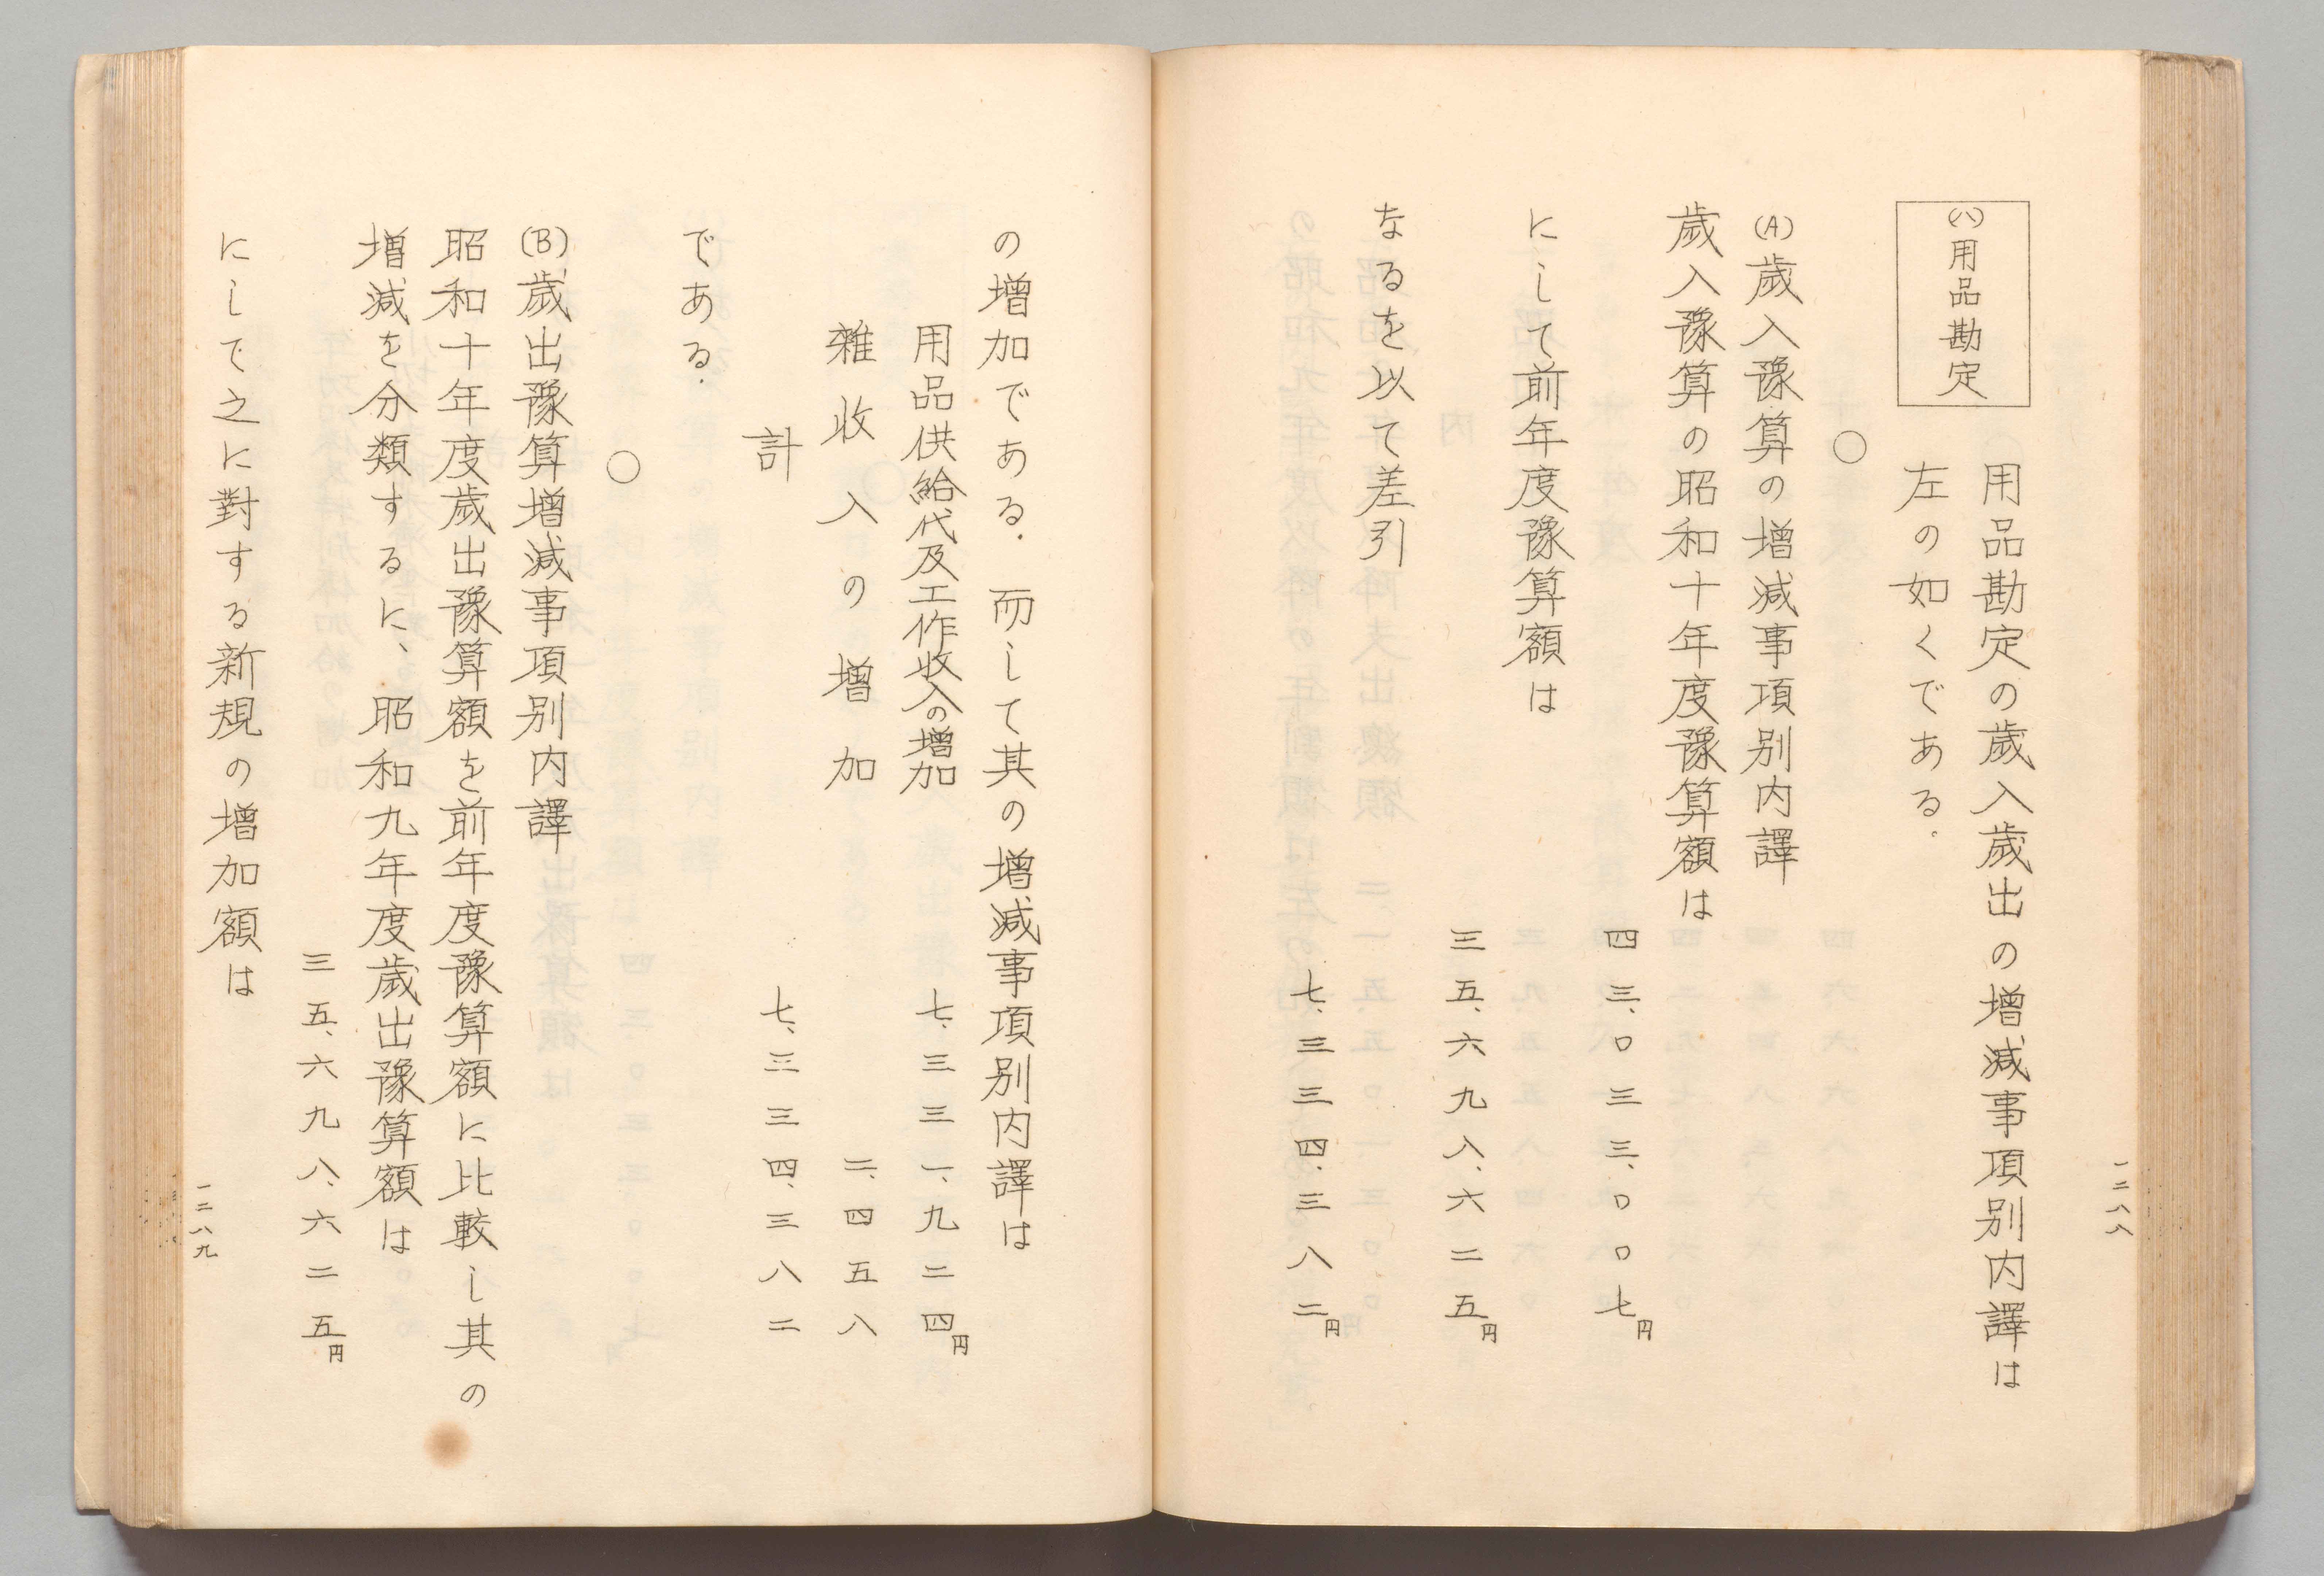 (ハ)用品勘定
用品勘定の歳入歳出の増減事項別内譯は
左の如くである.
○
(A)歳入豫算の増減事項別内譯
歳入豫算の昭和十年度豫算額は
四三、〇三三、〇〇七円
にして前年度豫算額は
三五、六九八、六二五円
なるを以て差引
七、三三四、三八二円
一二八八
の増加である. 而して其の増減事項別内譯は
用品供給代及工作收入の増加 七、三三一、九二四円
雜收入の増加 二、四五八
計 七、三三四、三八二
である.
○
(B)歳出豫算増減事項別内譯
昭和十年度歳出豫算額を前年度豫算額に比較し其の
増減を分類するに、昭和九年度歳出豫算額は
三五、六九八、六二五円
にして之に對する新規の増加額は
一二八九